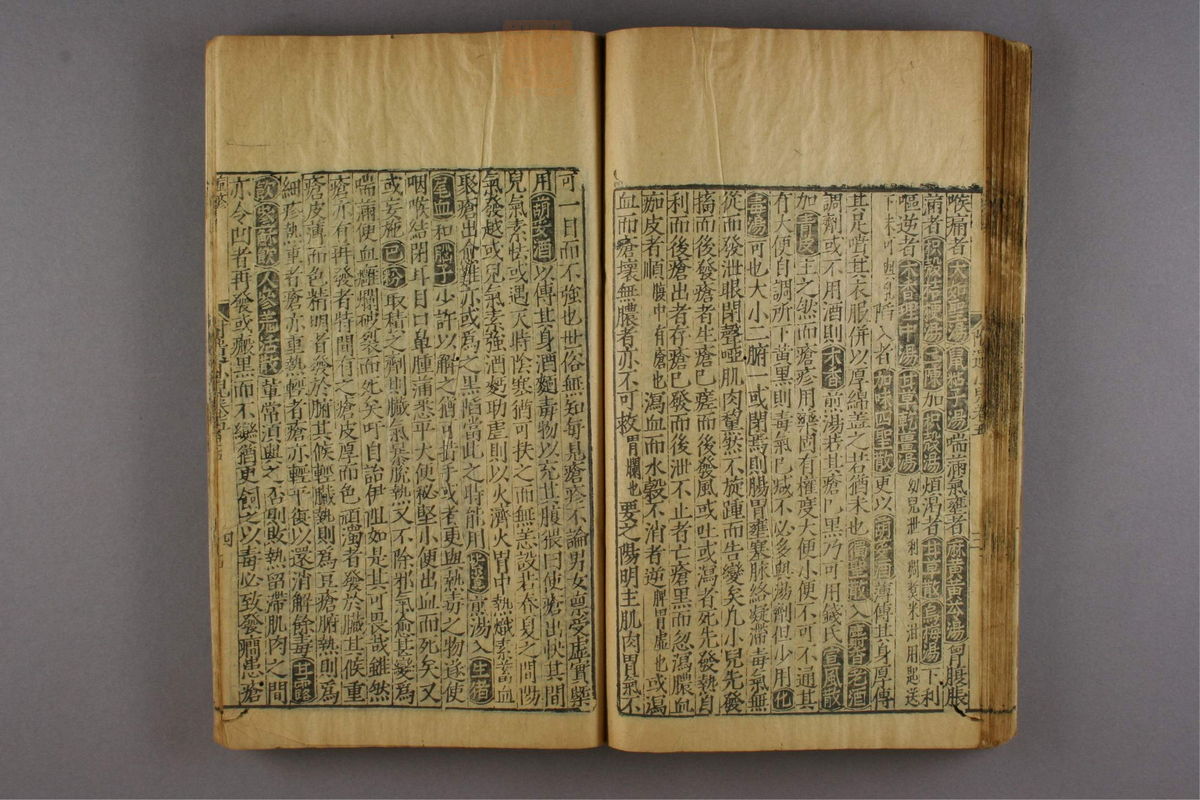 喉痛者大如聖湯鼠粘子湯喘滿氣壅者麻黃黃芩湯胷腹脹
痛者枳殼桔梗湯二陳加枳殼湯煩渴者甘草散烏梅湯下利
嘔逆者木香理中湯甘草乾薑湯
陷入者加味四聖散更以胡荽酒薄傅其身厚傅
其足噴其衣服併以厚綿蓋之若猶未也獨聖散入麝香老酒
調劑或不用酒則木香煎湯若其瘡已黑乃可用錢氏宣風散
加青皮主之然而瘡疹用藥固有權度大便小便不可不通其
有大便自調所下黃黑則毒氣已減不必多與湯劑但少用化
毒湯可也大小二腑一或閉焉則腸胃壅塞脉絡凝滯毒氣無
從而發泄眼閉聲啞肌肉黧然不旋踵而告變矣凡小兒先發
搐而後發瘡者生瘡已發而後發風或吐或瀉者死先發熱自
利而後瘡出者存瘡已發而後泄不止者亡瘡黑而忽瀉膿血
痂皮者順腹中有瘡也瀉血而水穀不消者逆脾胃虛也或瀉
血而瘡壞無膿者亦不可救胃爛也要之陽明主肌肉胃氣不
可一日而不強也世俗無知每見瘡疹不論男女稟受虛實槩
用胡荽酒以傅其身酒麪毒物以充其腹猥曰使瘡出快其間
兒氣素怯或遇天時陰寒猶可扶之而無恙設若春夏之間陽
氣發越或兒氣素強酒麪助虐則以火濟火胃中熱熾素蓄血
聚瘡出愈難亦或爲之黑陷當此之時能用紫草煎湯入生猪
尾血和腦子少許以解之猶可措手或者更與熱毒之物遂使
咽喉結閉耳目口鼻腫滿悉平大便祕堅小便出血而死矣又
或妄施巴粉取積之劑則臟氣暴脫熱又不除邪氣愈甚變爲
喘滿便血糜爛破裂而死矣吁自詒伊阻如是其可畏哉雖然
瘡亦有再發者特間有之瘡皮厚而色頑濁者發於臟其候重
瘡皮薄而色精明者發於腑其候輕臟熱則爲豆瘡腑熱則爲
細疹熱重者瘡亦重熱輕者瘡亦輕平復以還消解餘毒甘露
飲參蘇飲人參羌活散輩常湏與之否則敗熱留滯肌肉之間
亦令凹者再發或癜黑而不變猶更飼之以毒必致發癰患瘡